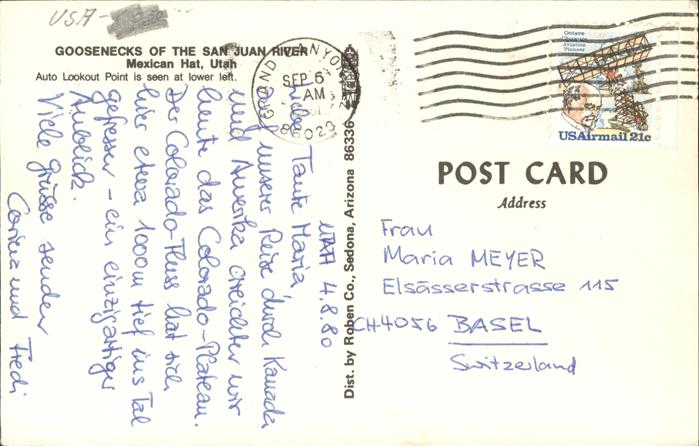 USA
GOOSENECKS OF THE SAN JUAN RIVER
Mexican Hat, Utah
Auto Lookout Point is seen at lower left.
GRAND CANYON
SEP 6
AM
86023
Octave
Chanute
Aviation
Pioneer
USAirmail 21c
POST CARD
Address
Dist. by Roben Co., Sedona, Arizona 86336
UTAH 4.8.80
Liebe Tante Maria
Auf unserer Reise durch Kanada
und Amerika erreichten wir
heute das Colorado-Plateau.
Der Colorado-Fluss hat sich
hier etwa 1000m tief ins Tal
gefressen - ein einzigartiger
Anblick.
Viele Grüsse senden
und Fredi
Frau
Maria MEYER
Elsässerstrasse 115
CH4056 BASEL
Switzerland